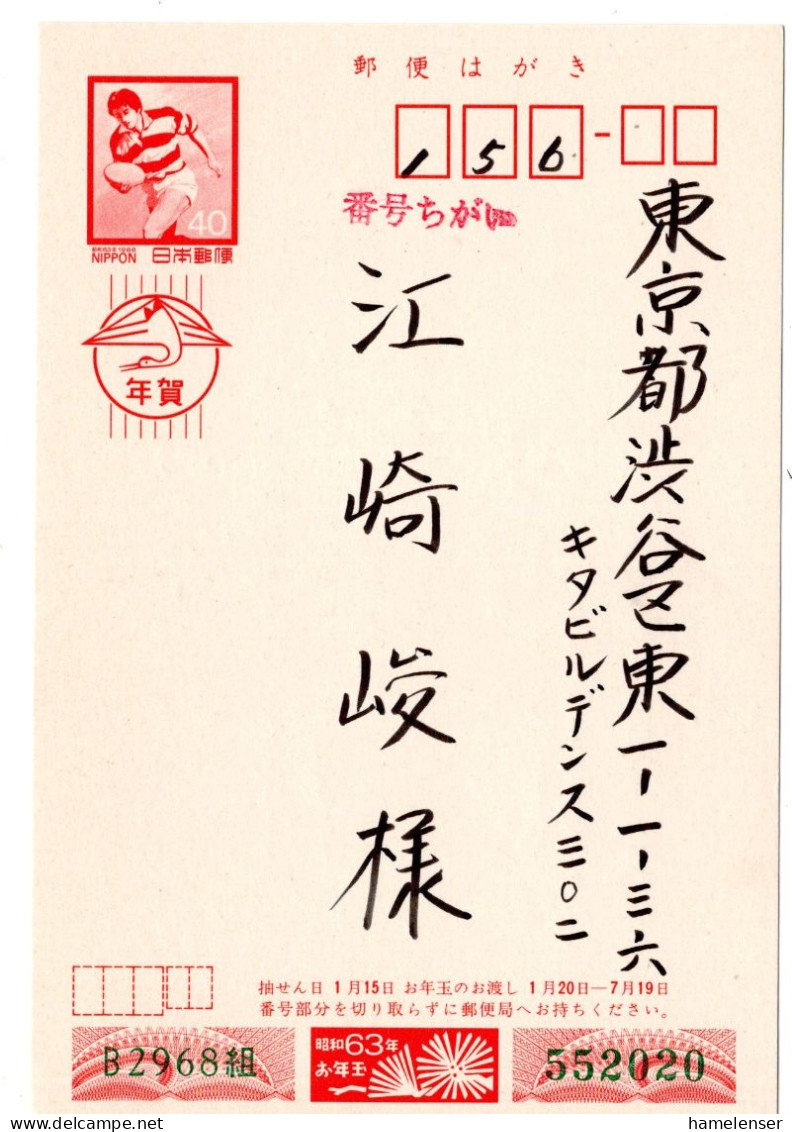 郵便はがき
40
昭和63年1988
NIPPON 日本郵便
年賀
156
番号ちがい
東京都渋谷区東一ー一ー三六
キタビルデンス三〇二
江崎峻様
抽せん日 1月15日 お年玉のお渡し 1月20日―7月19日
番号部分を切り取らずに郵便局へお持ちください。
B2968組
昭和63年
お年玉
552020
hamelenser